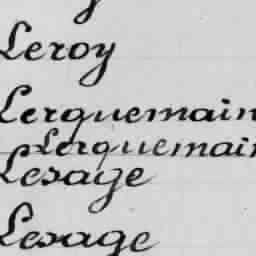 Leroy
Lerquemain
Lerquemain
Lesage
Lesage